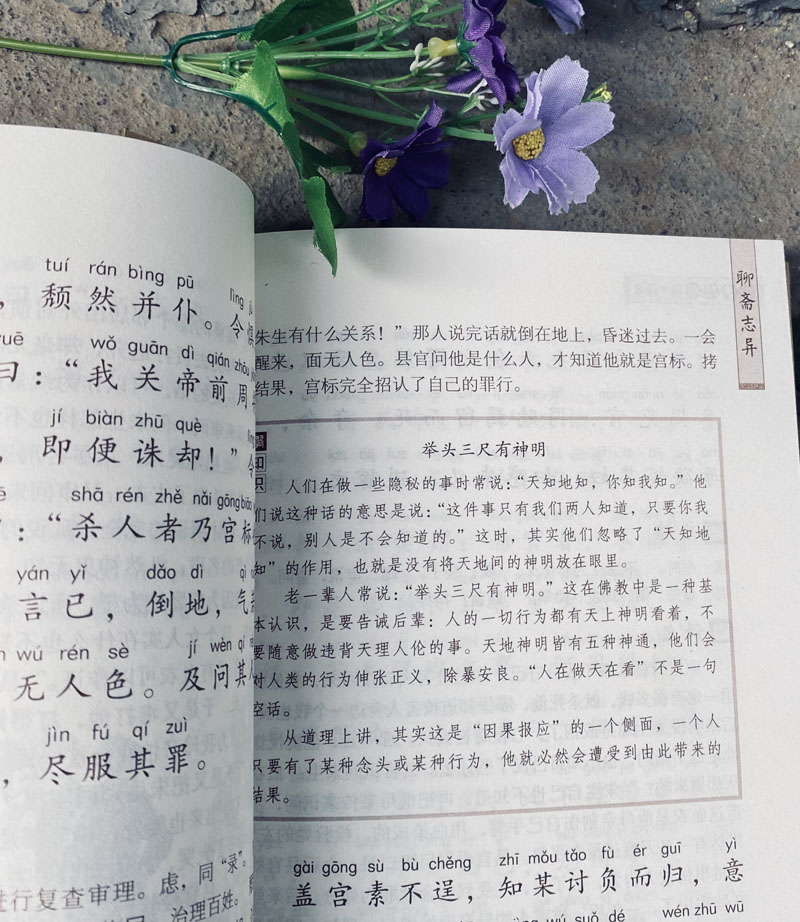 tuí rán bìng pū
，颓然并仆。令
wǒ guān dì qián zhōu
曰：“我关帝前周
jí biàn zhū què
，即便诛却！”
shā rén zhě nǎi gōng biāo
：“杀人者乃宫标
yán yì dǎo dì
言已，倒地，气
wú rén sè jí wèn qí
无人色。及问其
jìn fú qí zuì
，尽服其罪。
进行复查审理。虑，同“录”。
治理百姓。
聊斋志异
朱生有什么关系！”那人说完话就倒在地上，昏迷过去。一会
醒来，面无人色。县官问他是什么人，才知道他就是宫标。拷
结果，宫标完全招认了自己的罪行。
知识
举头三尺有神明
人们在做一些隐秘的事时常说：“天知地知，你知我知。”他
们说这种话的意思是说：“这件事只有我们两人知道，只要你我
不说，别人是不会知道的。”这时，其实他们忽略了“天知地
知”的作用，也就是没有将天地间的神明放在眼里。
老一辈人常说：“举头三尺有神明。”这在佛教中是一种基
本认识，是要告诫后辈：人的一切行为都有天上神明看着，不
要随意做违背天理人伦的事。天地神明皆有五种神通，他们会
对人类的行为伸张正义，除暴安良。“人在做天在看”不是一句
空话。
从道理上讲，其实这是“因果报应”的一个侧面，一个人
只要有了某种念头或某种行为，他就必然会遭受到由此带来的
结果。
gài gōng sù bù chěng zhī mǒu tǎo fù ér guī yì
盖宫素不逞，知某讨负而归，意
wú suǒ dé wén zhū wū